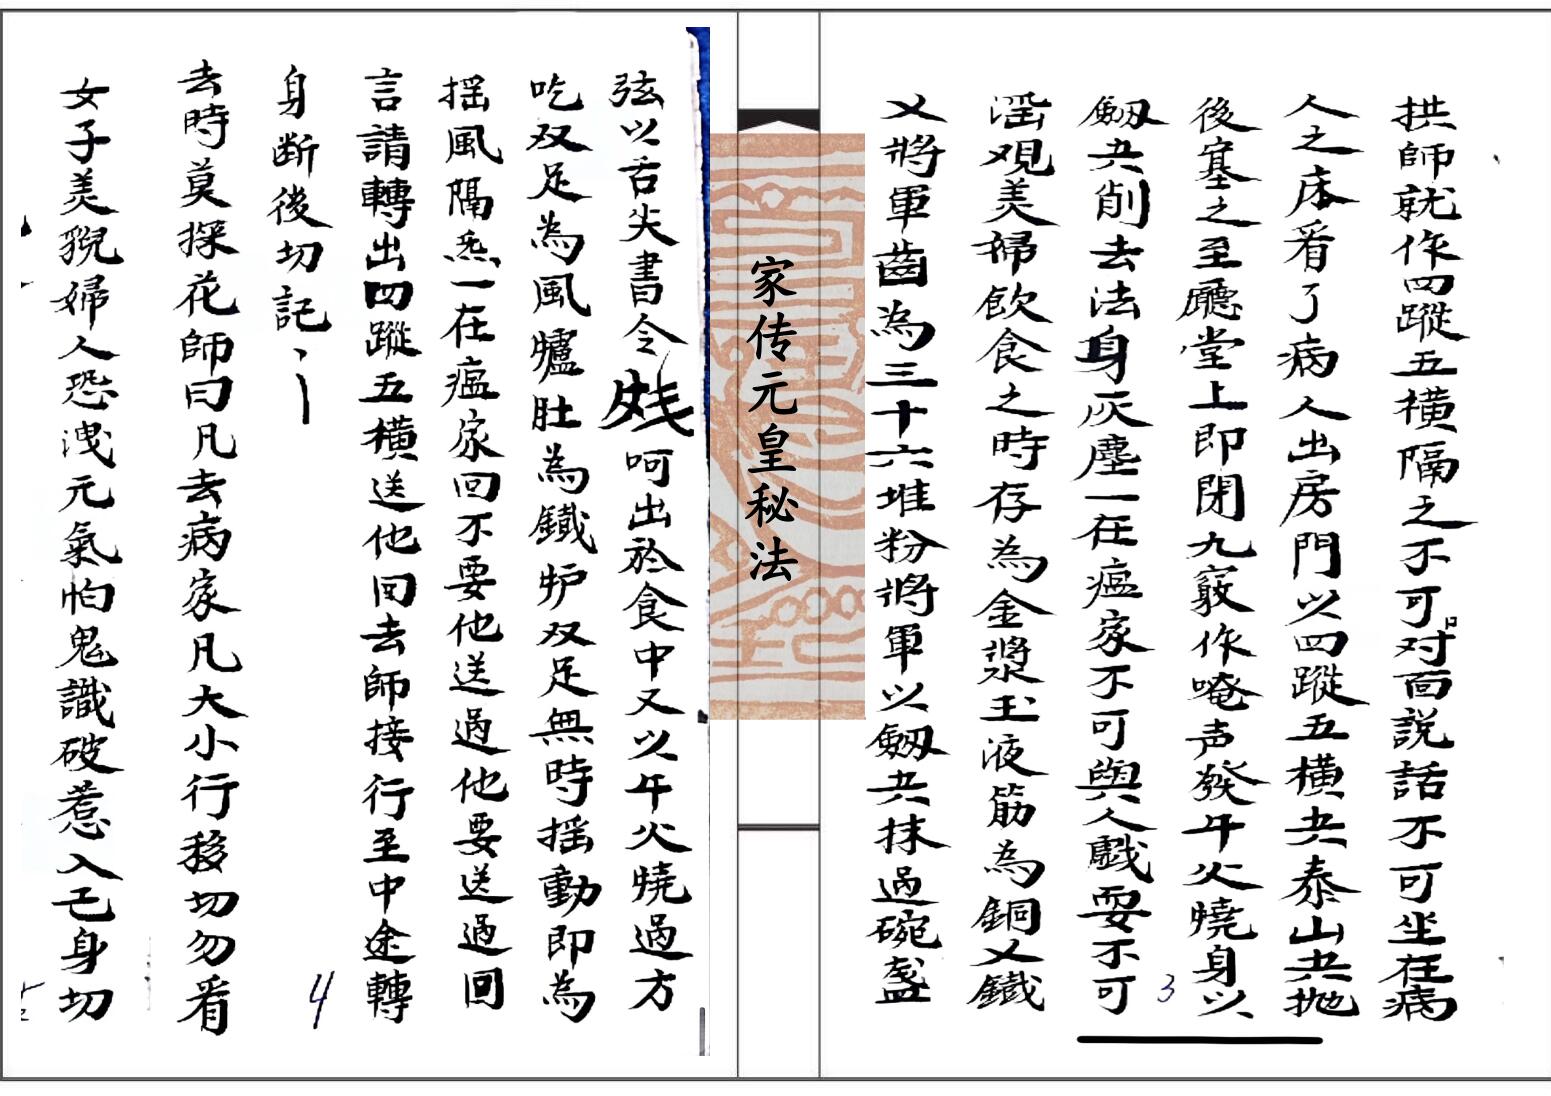 拱師就作四蹤五橫隔之不可对面説話不可坐在病
人之床看了病人出房門以四蹤五橫共泰山共抛
後塞之至廳堂上即閉九竅作唵声發午火燒身以
劔共削去法身灰塵一在瘟家不可與人戲耍不可
滛观美婦飲食之時存為金漿玉液筋為銅义鐵
义將軍齒為三十六堆粉將軍以劔共抹過碗盞
3
家传元皇秘法
弦以舌尖書令
呵出於食中又以午火燒過方
吃双足為風爐肚為鐵炉双足無時摇動即為
摇風隔炁一在瘟家回不要他送過他要送過回
言請轉出四蹤五橫送他回去師接行至中途轉
身断後切記丶丨
4
去時莫探花師曰凡去病家凡大小行移切勿看
女子美貌婦人恐洩元氣怕鬼識破惹入己身切